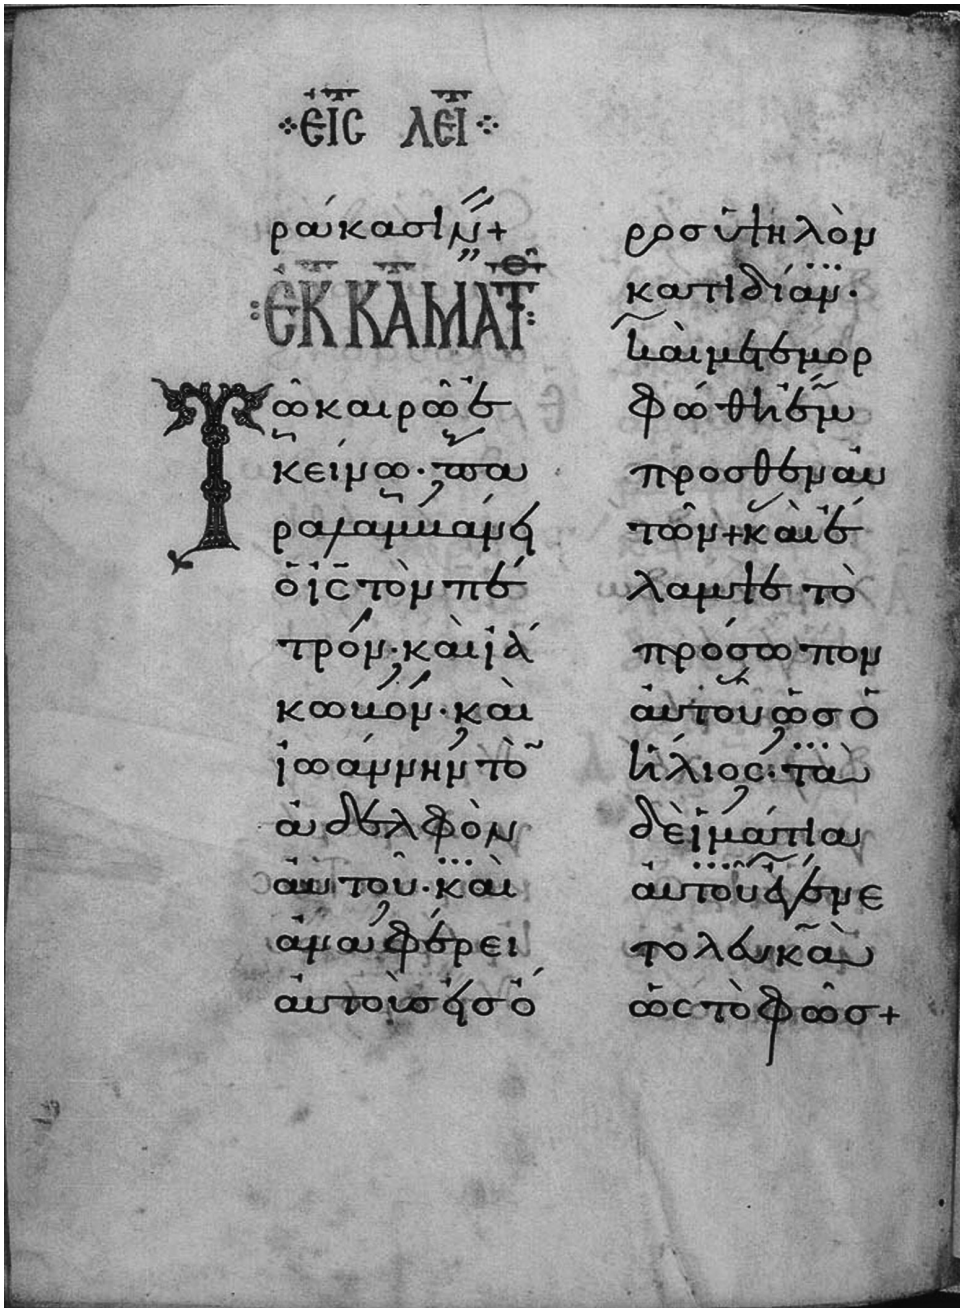 εἰς λει
ράκασιν+
ἐκ κα ματθ
Τῶ καιρῶ ἐ
κείνω· πα
ραλαμβάνει
ὁ ι̅ς̅ τὸν πέ
τρον· καὶ ϊά
κωβον· καὶ
ϊωάννην τὸ
ἀδελφὸν
αὐτοῦ· καὶ
ἀναφέρει
αὐτοὺς εἰς ὄ
ρος ὑψηλὸν
κατιδίαν·
καὶ μετεμορ
φώθη ἔμ
προσθεν αὐ
τῶν+ καὶ ἔ
λαμψε τὸ
πρόσωπον
αὐτοῦ ὡς ὁ
ἥλιος· τὰ
δὲ ϊμάτια
αὐτοῦ ἐγένε
το λευκὰ
ὡς τὸ φῶς+